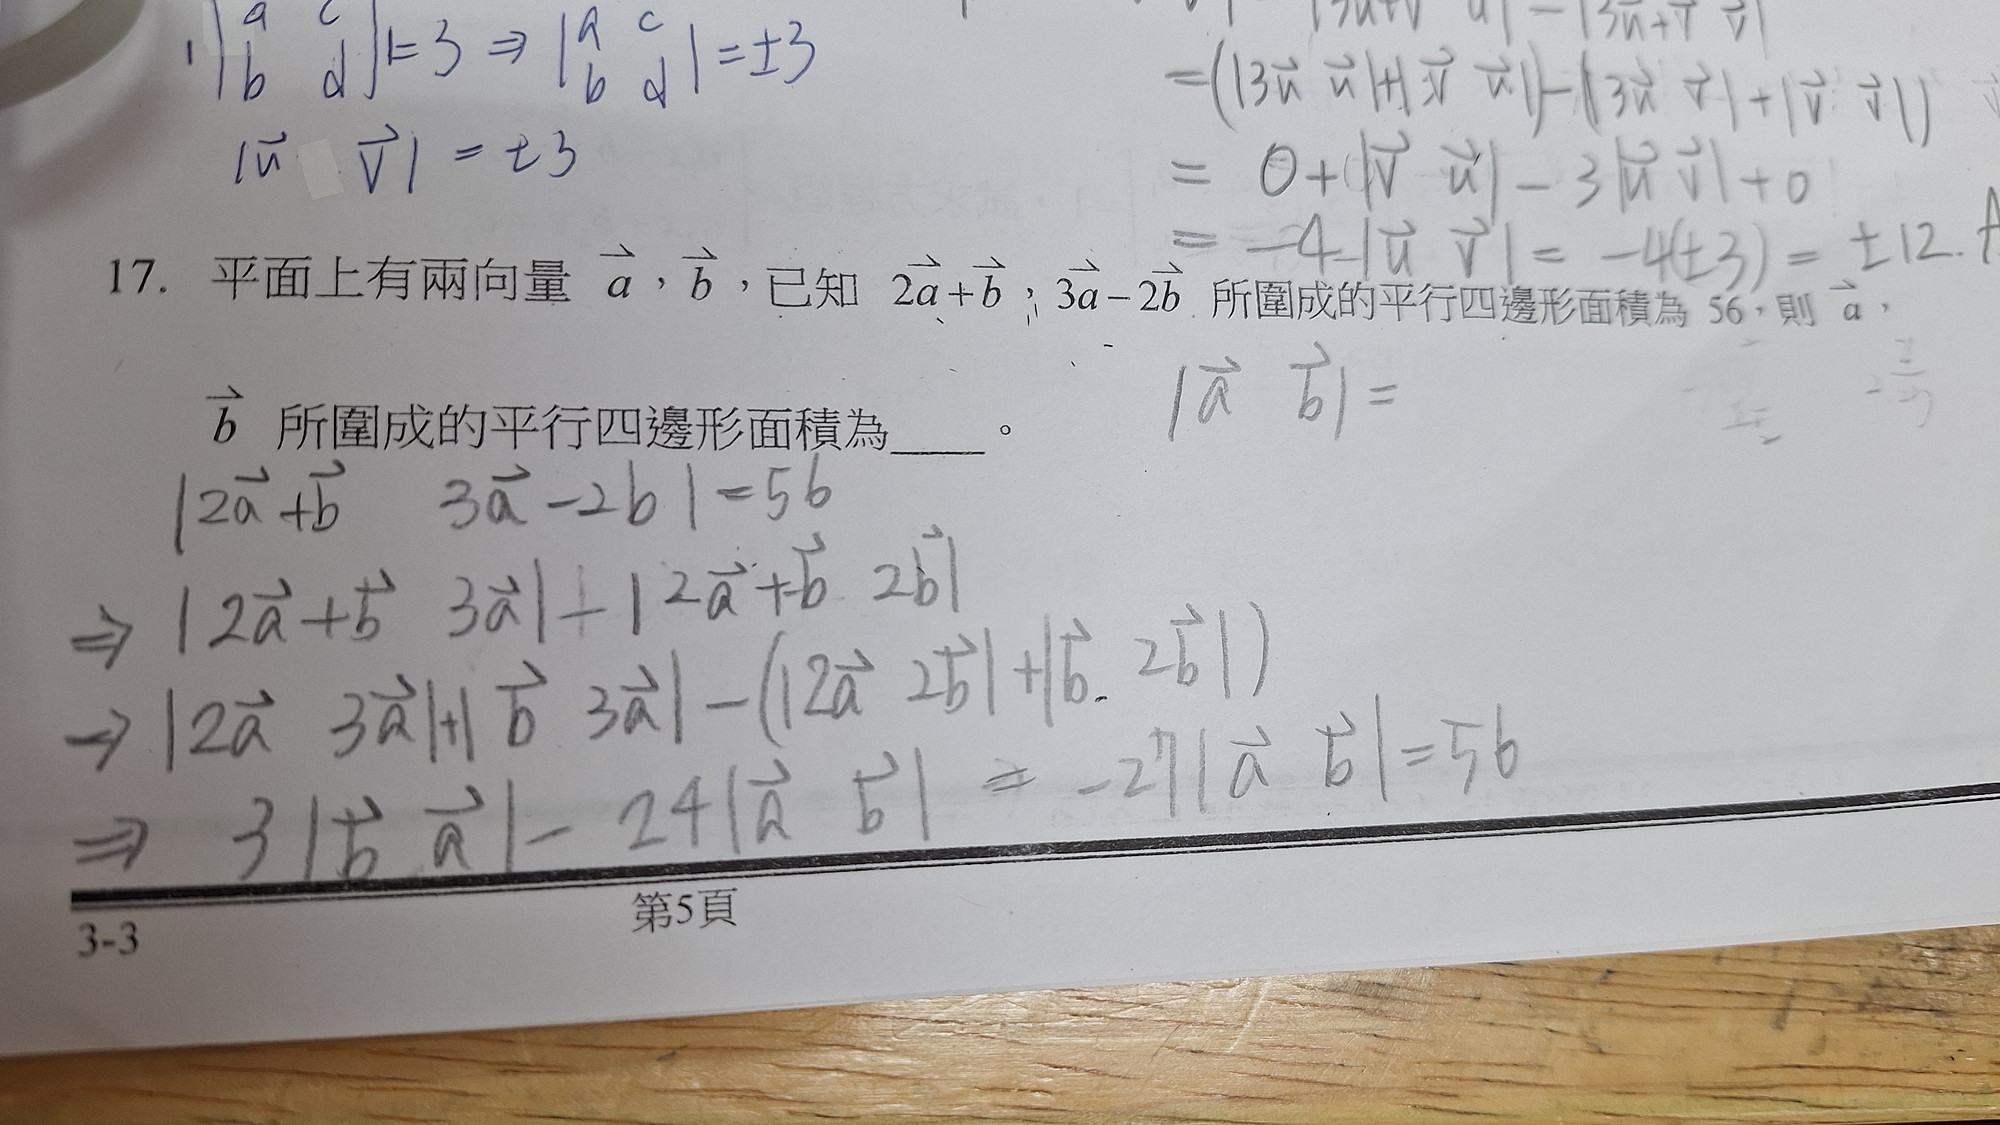 | a c b d | = 3 ⇒ | a c b d | = ±3
|u⃗ v⃗| = ±3
|3u⃗+v⃗ u⃗| − |3u⃗+v⃗ v⃗|
= (|3u⃗ u⃗|+|v⃗ u⃗|) − (|3u⃗ v⃗|+|v⃗ v⃗|)
= 0+|v⃗ u⃗| − 3|u⃗ v⃗| + 0
= −4|u⃗ v⃗| = −4(±3) = ±12.
17. 平面上有兩向量 a⃗,b⃗,已知 2a⃗+b⃗,3a⃗−2b⃗ 所圍成的平行四邊形面積為 56,則 a⃗,
b⃗ 所圍成的平行四邊形面積為____。
|a⃗ b⃗| =
|2a⃗+b⃗ 3a⃗−2b| = 56
⇒ |2a⃗+b⃗ 3a⃗| − |2a⃗+b⃗ 2b⃗|
→ |2a⃗ 3a⃗|+|b⃗ 3a⃗| − (|2a⃗ 2b⃗|+|b⃗ 2b⃗|)
⇒ 3|b⃗ a⃗| − 24|a⃗ b⃗| = −27|a⃗ b⃗| = 56
3-3
第5頁